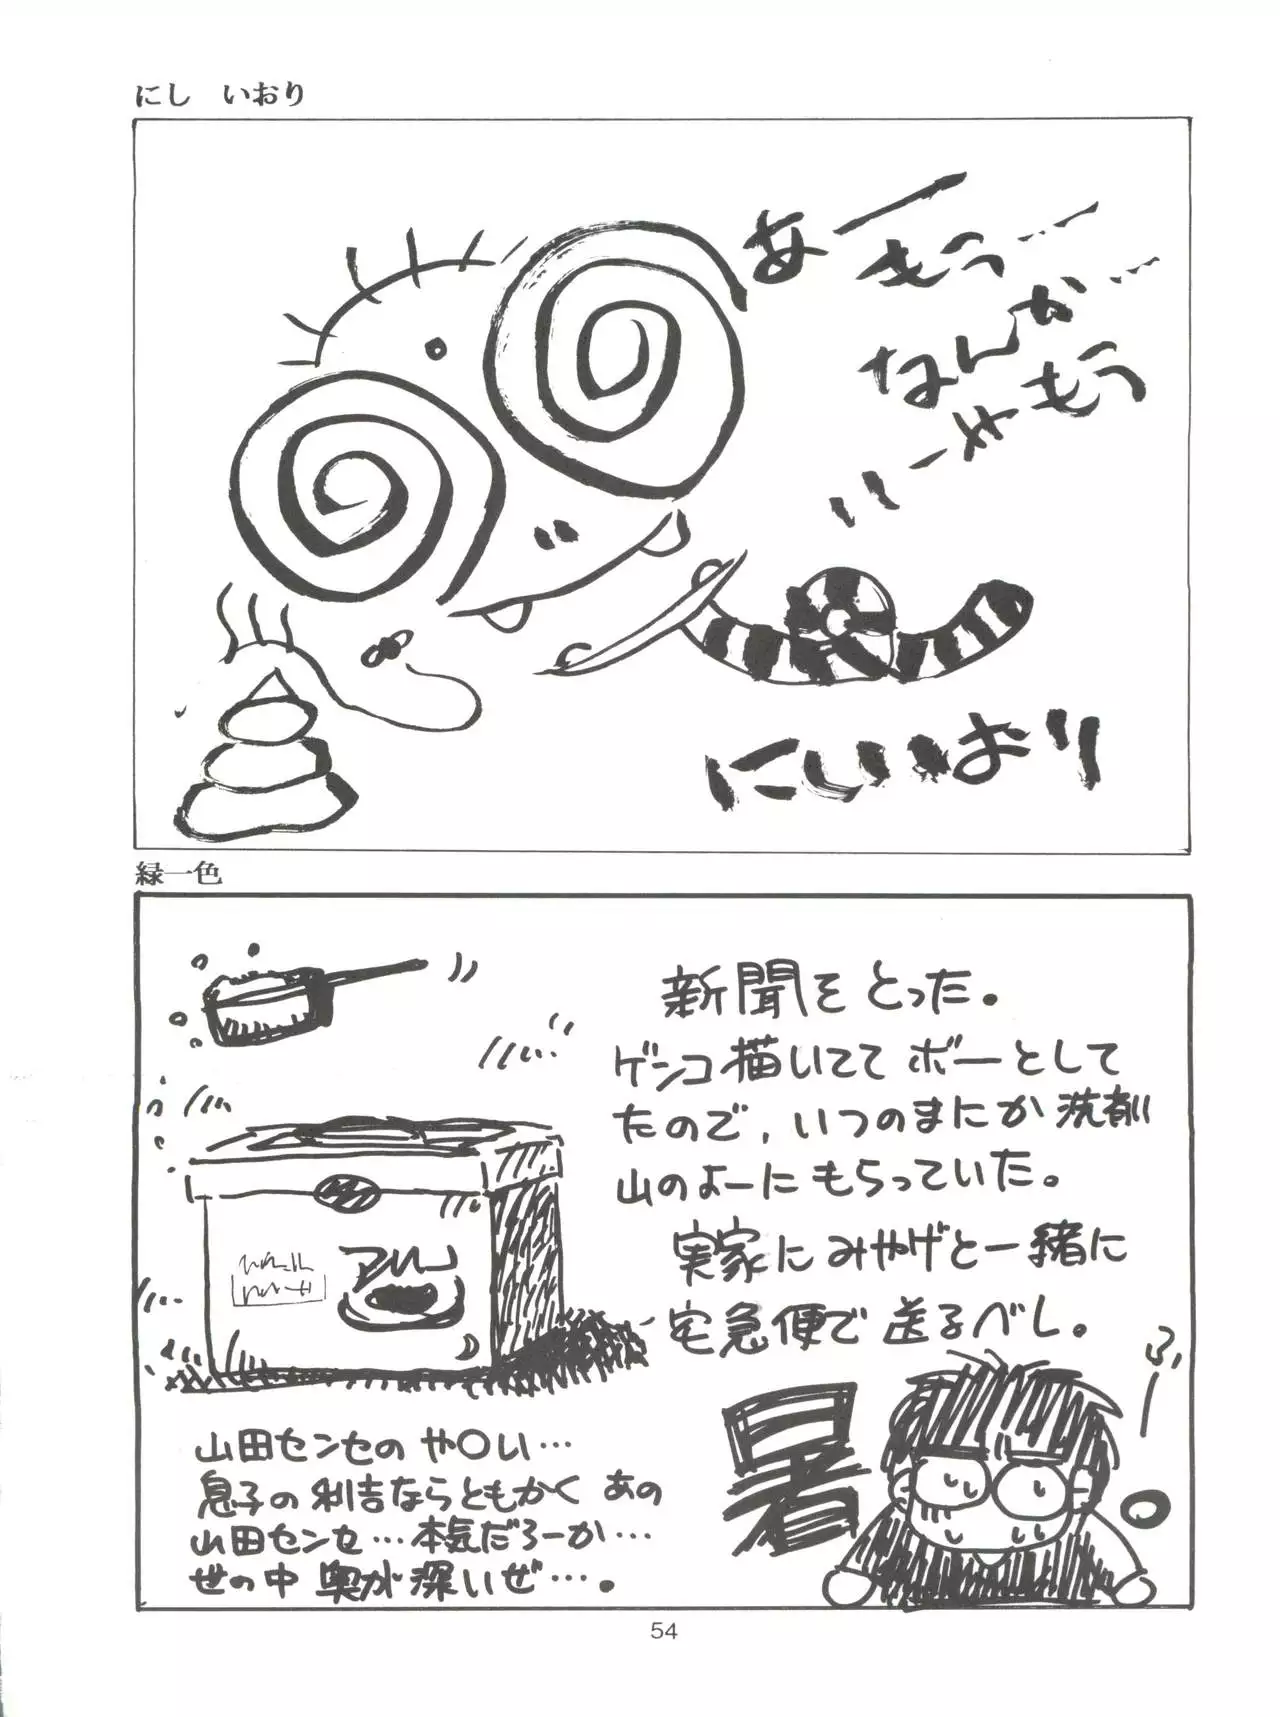 にし いおり
あー
もう…
なんか…
もう
にしいおり
緑一色
新聞をとった。
ゲンコ描いてて ボーとして
たので, いつのまにか 洗剤
山のよーに もらっていた。
実家に みやげと一緒に
宅急便で 送るべし。
アタック
ふぅ
暑
山田センセの や○い…
息子の利吉ならともかく あの
山田センセ…本気だろーか…
世の中 奥が深いぜ…。
54